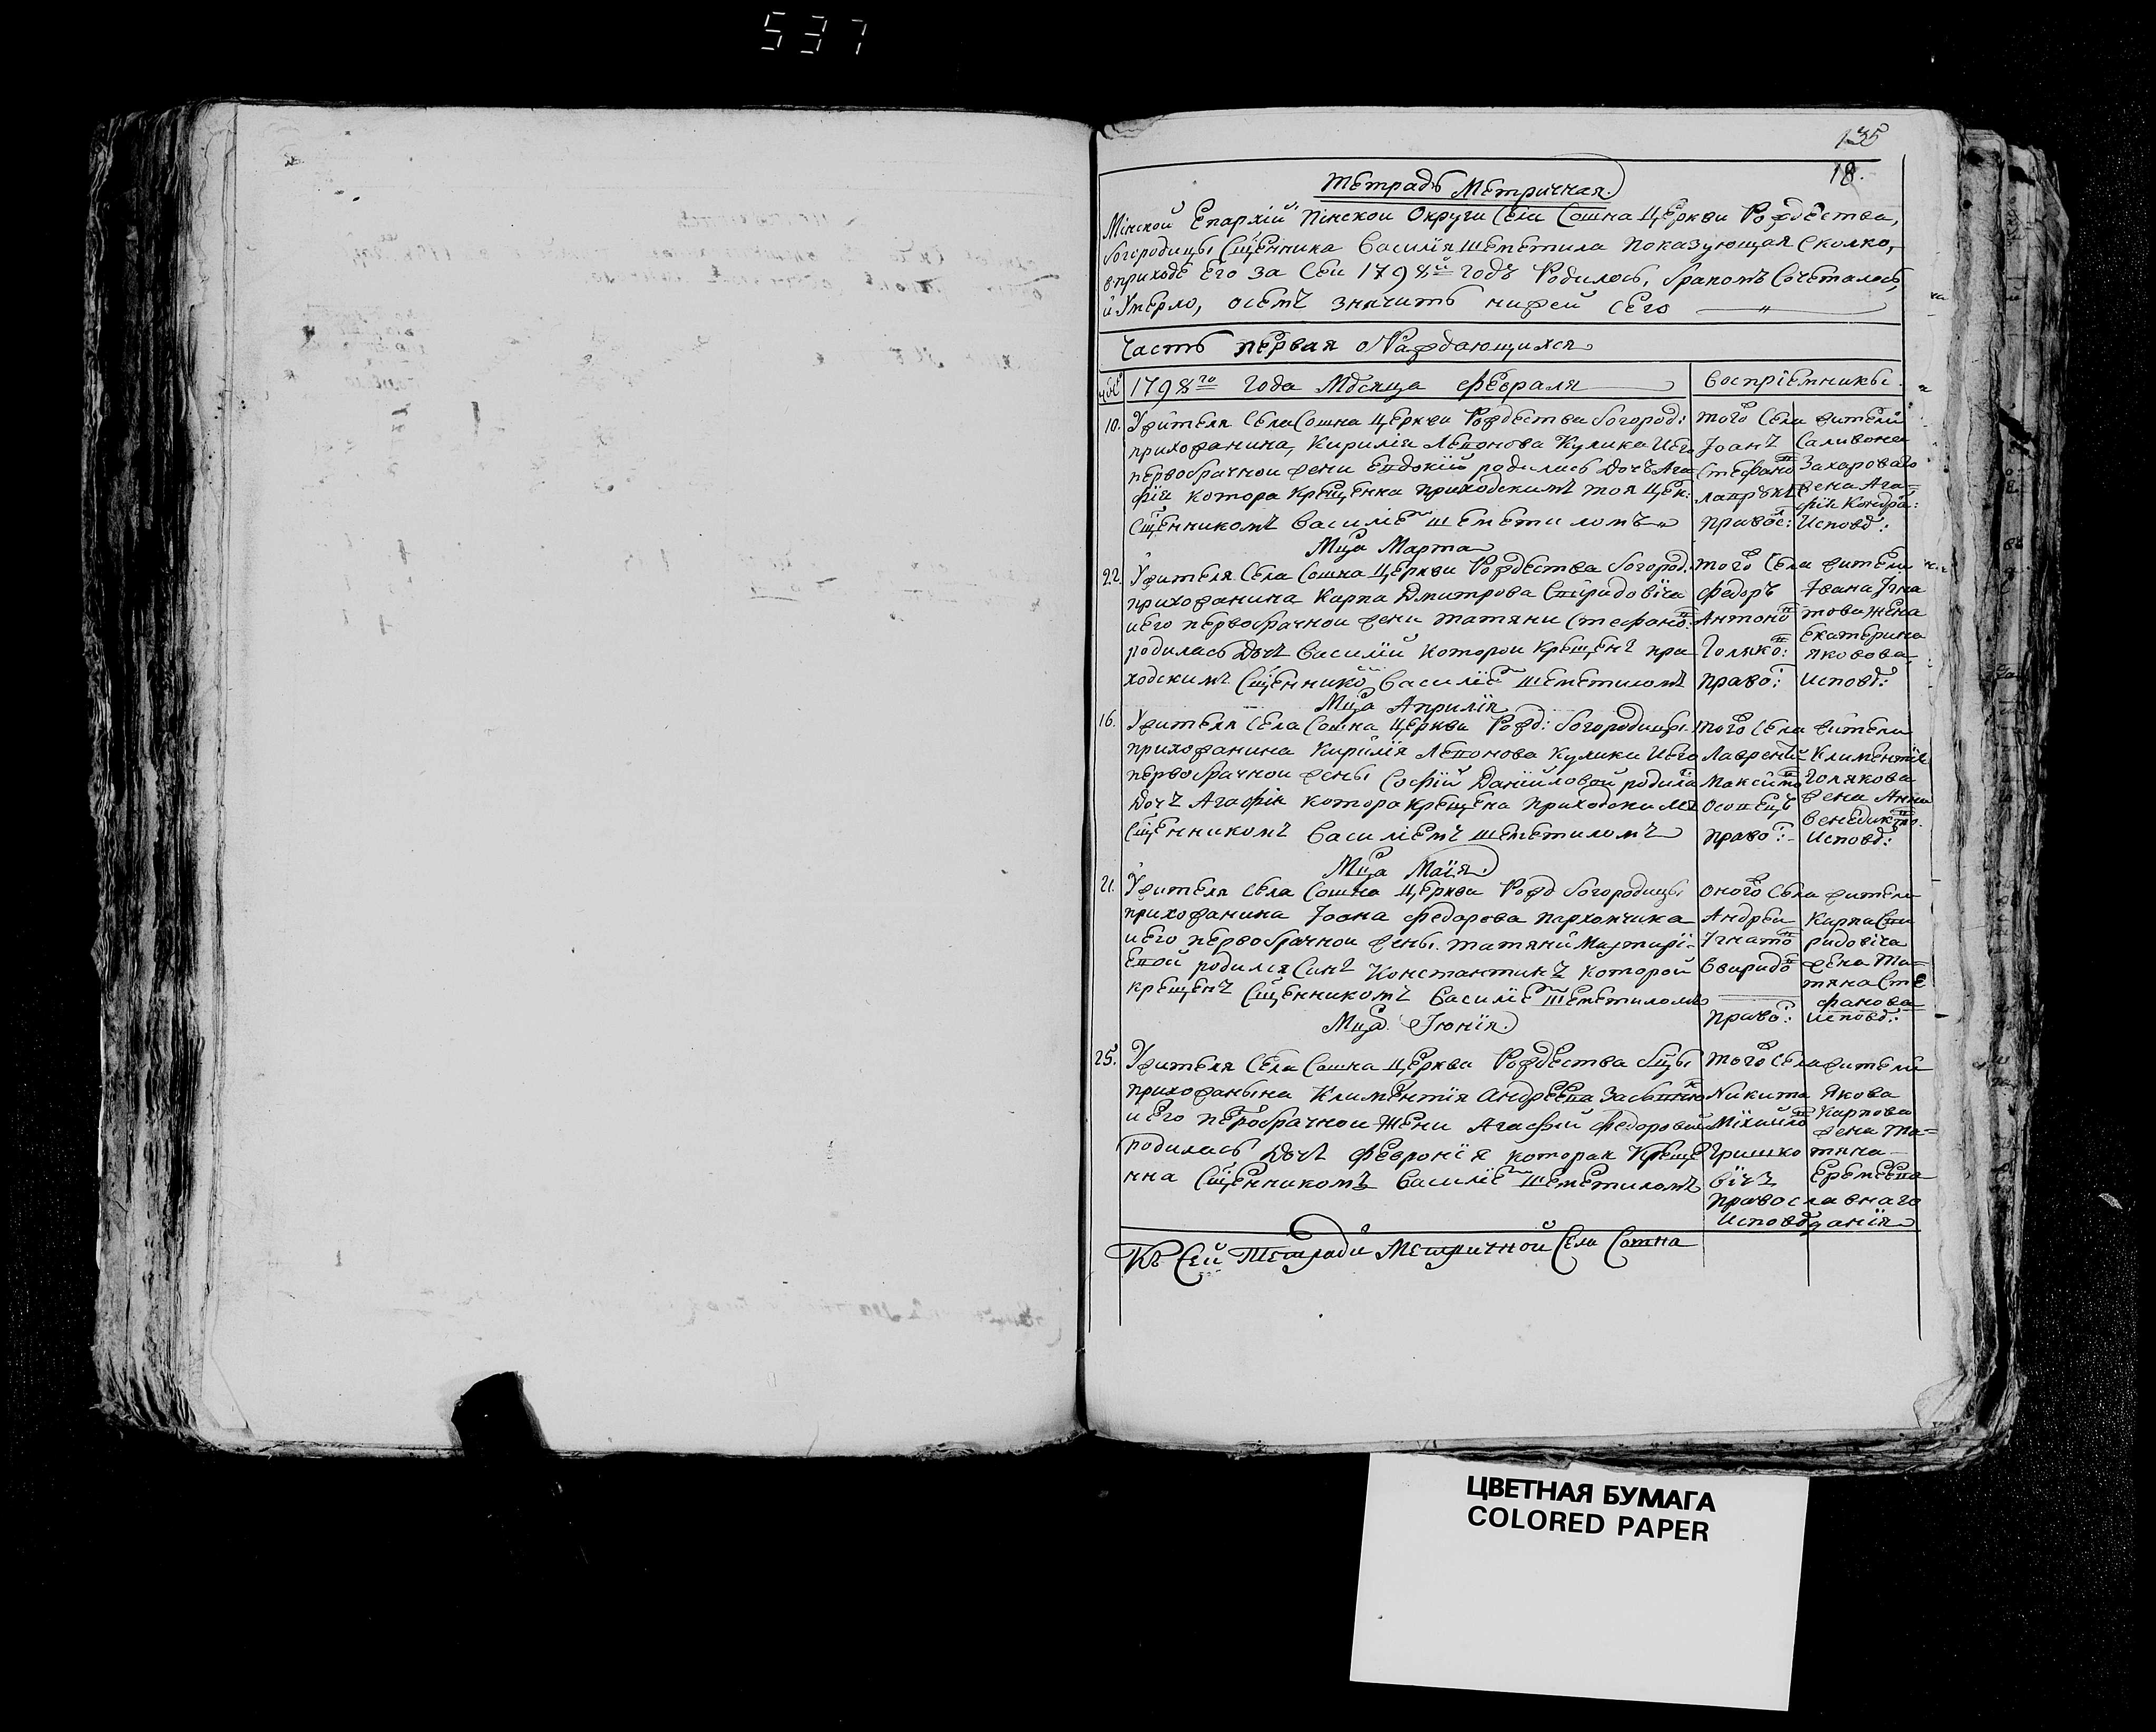 537
135
18.
Тетрадъ Метричная
Мінской Епархіи Пінской Округи Села Сошна Церкви Рождества,
Богородицы Сщенника Василія Шеметила показующая сколко,
въ приходѣ Его за Сей 1798й годъ Родилось, бракомъ Сочеталось,
и Умерло, осемъ значитъ нижей сего
Часть первая о Раждающихся
1798го Года Мѣсяца Февраля
Воспріемники
10. Жителя Села Сошна Церкви Рождества Богород:
прихожанина, Кирилія Леонова Кулика и Его
первобрачной жени Евдокіи родилась Дочъ Ага
фія котора Крещенна приходскимъ тоя Цек:
Сщенникомъ Василіем Шеметиломъ
того Села жители
Іоанъ
Стефанов
православ:
Саливона
Захарового
жена Ага=
фія Кондра:
Исповѣ:
Мца Марта
22. Жителя Села Сошна Церкви Рождества Богород.
прихожанина Карпа Дмитрова Спиридовіча
и Его первобрачной жени Татяни Стефанов:
родилась Дочъ Василіи которои Крещенъ при
ходскимъ Сщенником Василіем Шеметиломъ
того Села жители
Федоръ
Антонов
Голяко:
Право:
Івана Ігна
това жена
Екатерина
Яковова
исповѣ:
Мца Априлія
16. Жителя Села Сошна Церкви Рожд: Богородицы
прихожанина Кирилія Леонова Кулики и Его
первобрачной жены Софіи Даніиловой родила
Дочъ Агафія котора крещена приходскимъ
Сщенникомъ Василіемъ Шеметиломъ
того Села жители
Лаврентій
Максимов
Право:
Климентія
Голякова
жена Анна
Венедиктов.
Исповѣ:
Мца Маія
21. Жителя Села Сошна Церкви Рожд Богородицы
прихожанина Іоана Федорова Пархомчика
и Его первобрачной жены Татяни Мартирі-
евой родился Синъ Константинъ которой
крещенъ Сщенникомъ Василіем Шеметиломъ
оного Села жители
Андреи
Ігнатов
Свиридов
Право:
Карпа Спи
ридовіча
жена Та=
тяна Сте
фанова
исповѣ:
Мца Іюнія
25. Жителя Села Сошна Церкви Рождества Бцы
прихожанына Климентія Андреева
и Его первобрачной жени Агафіи Федоровой
родилась Дочъ Февронія которая Креще
нна Сщенникомъ Василіем Шеметиломъ
того Села жители
Никита
Міхайлов
Гришко
вічъ
Якова
Карпова
жена Та=
тяна
Еремеева
Православнаго
Исповѣданія
Къ Сей Тетради Метричной Села Сошна
ЦВЕТНАЯ БУМАГА
COLORED PAPER